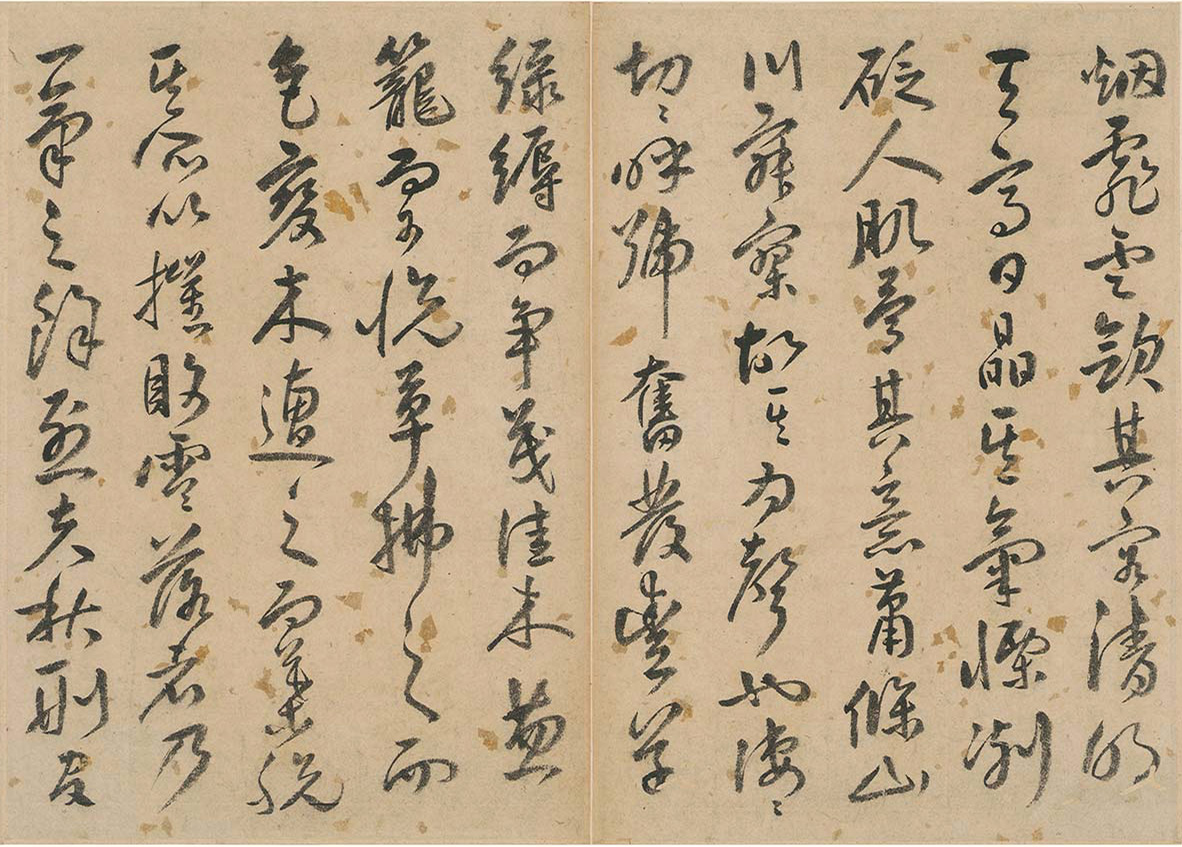 烟霏雲歛其容清明
天高日晶其氣慄冽
砭人肌骨其意蕭條山
川寂寥故其為聲也淒〻
切〻呼號奮發豐草
綠縟而爭茂佳木葱
籠而可悅草拂之而
色變木遭之而葉脫
其所以摧敗零落者乃
一氣之餘烈夫秋刑官